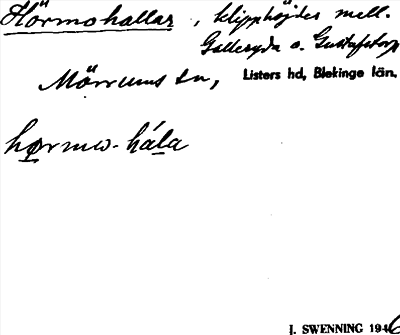 Hörmohallar, klipphöjder mell.
Galleryda o. Gustafstorp
Mörrums sn, Listers hd, Blekinge län.
hørmo-hála
J. SWENNING 1946